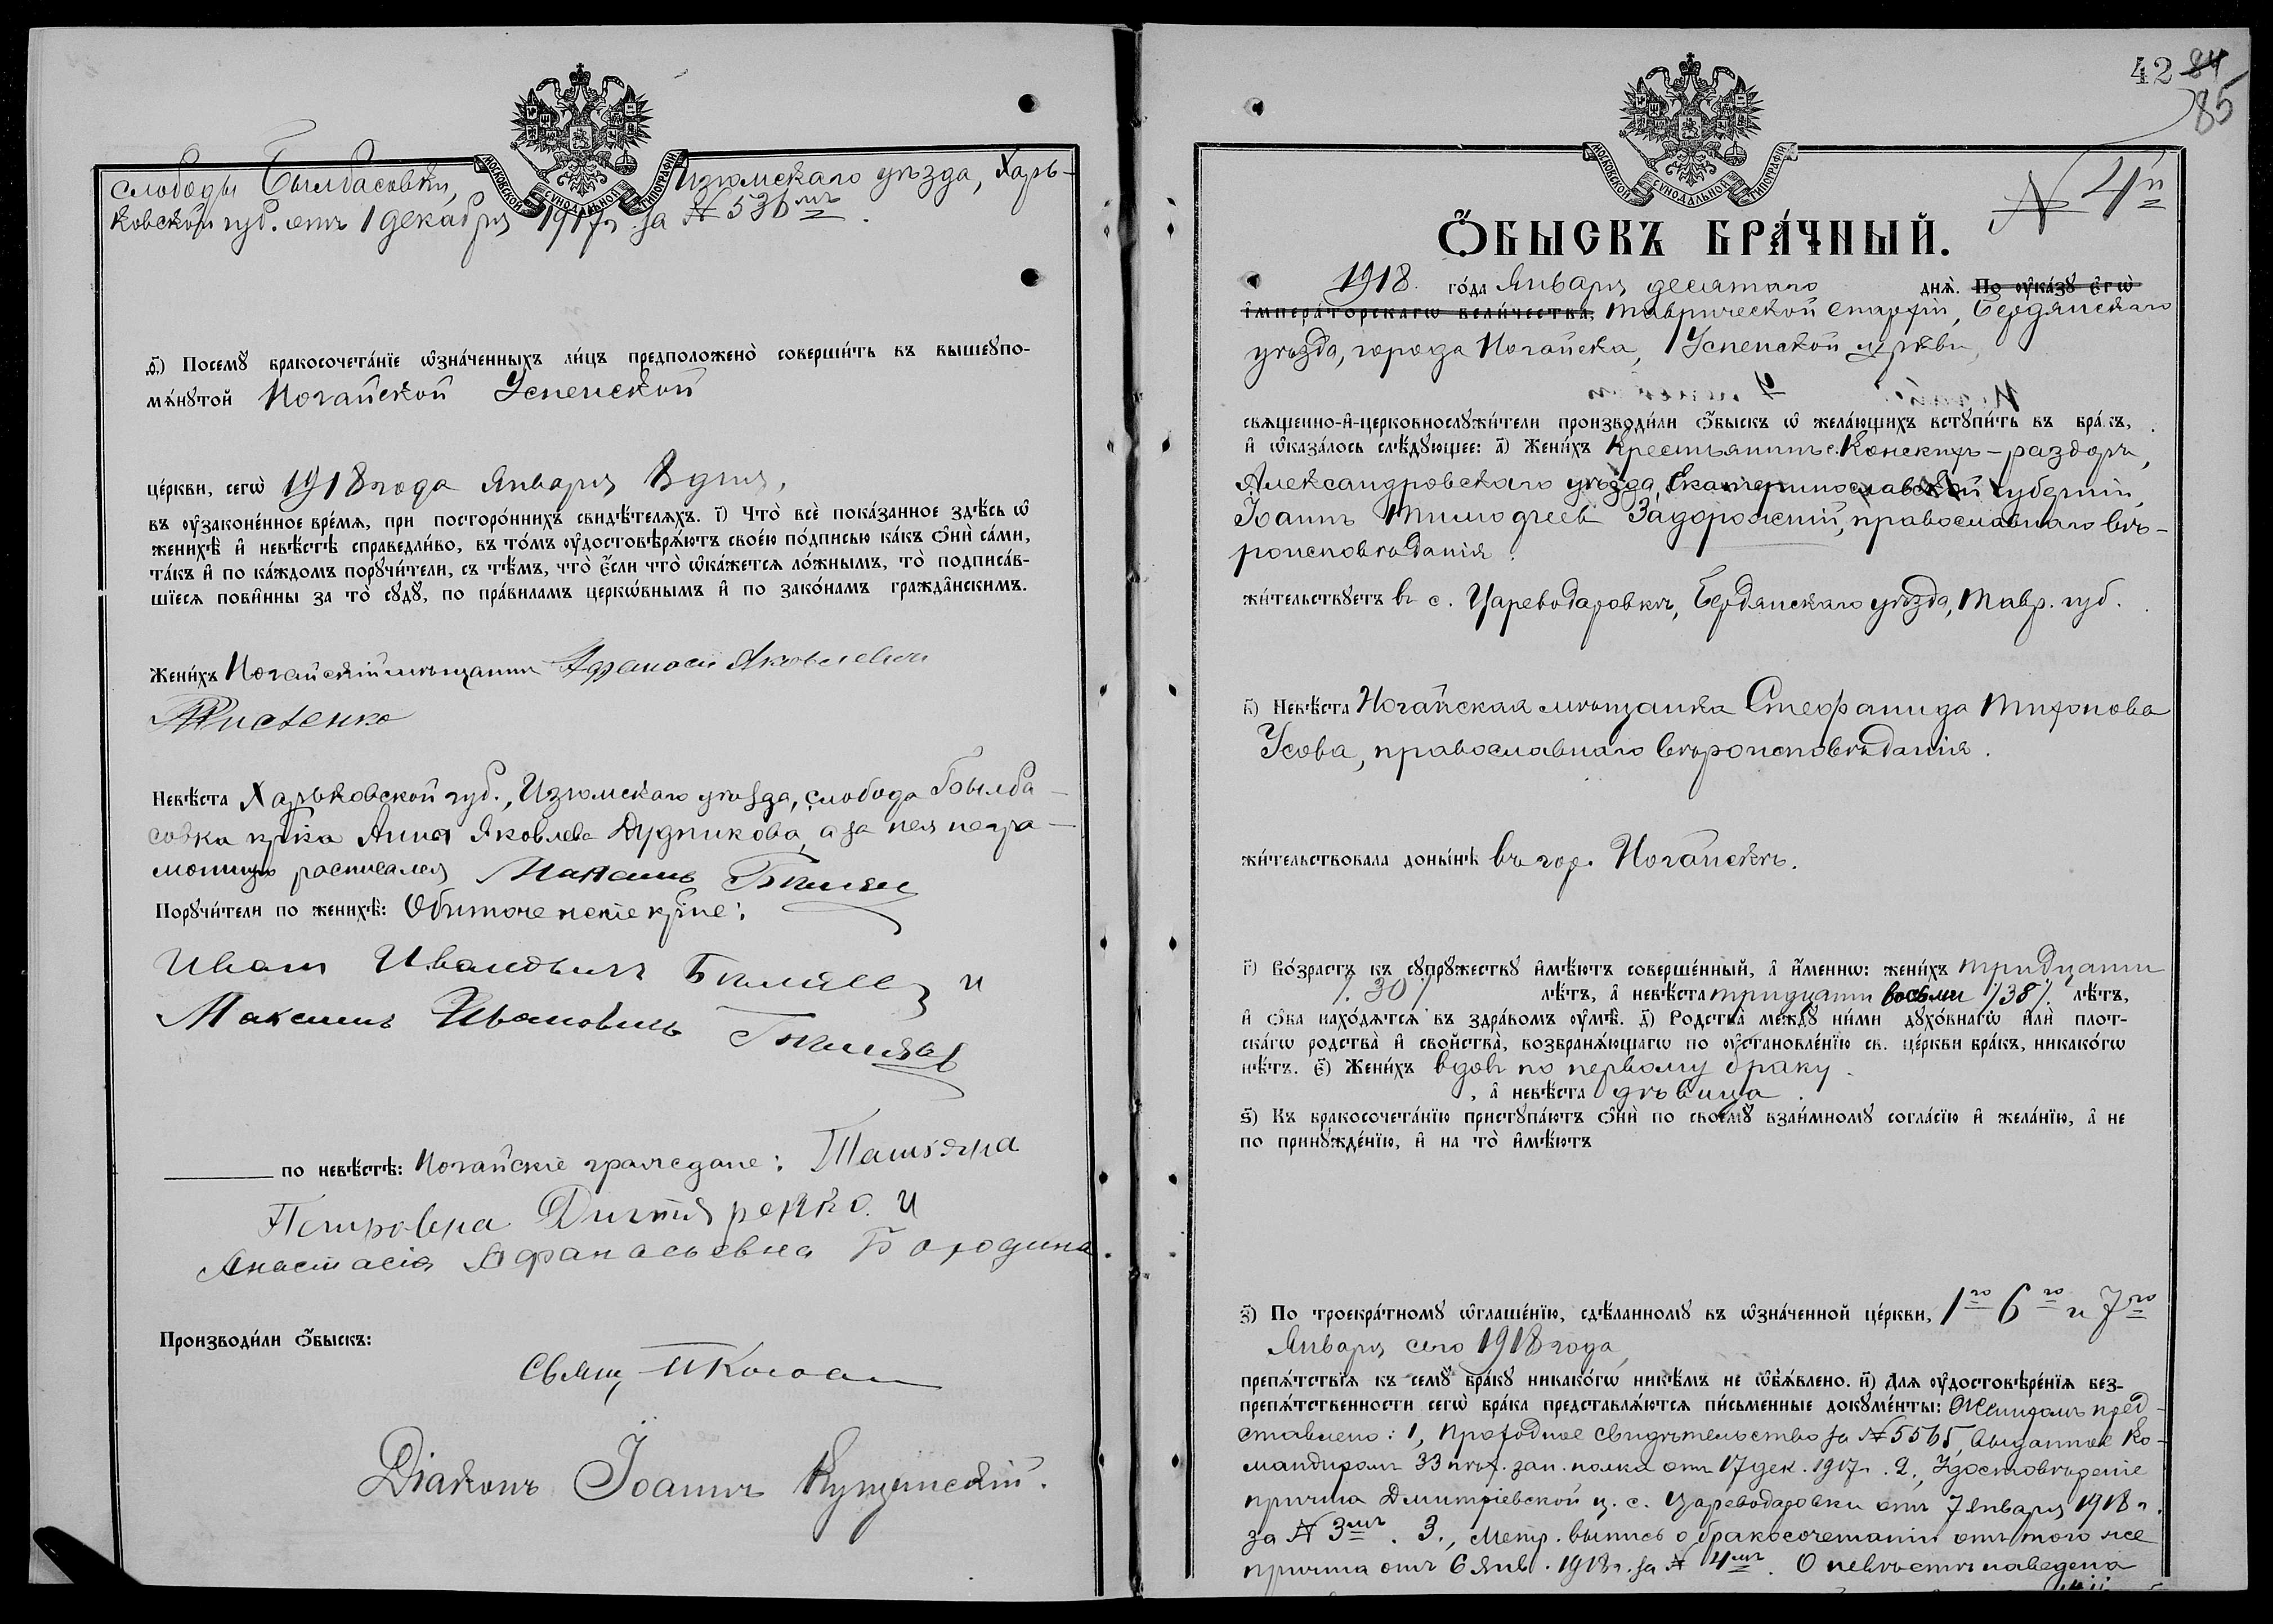 слободы Былбасовки, Изюмскаго уѣзда, Харь-
ковской губ. отъ 1 декабря 1917 г. за № 536мъ.
МОСКОВСКОЙ СѴНОДАЛЬНОЙ ТИПОГРАФІИ
ѳ҃) Посемꙋ̀ бракосочета́нїе ѡ҆зна́ченныхъ ли́цъ предположено̀ соверши́ть въ вышеꙋпо-
мѧ́нꙋтой Ногайской Успенской
це́ркви, сегѡ̀ 1918 года Января 8 дня,
въ ᲂу҆законе́нное вре́мѧ, при посторо́ннихъ свидѣ́телѧхъ. і҃) Что̀ всѐ пока́занное здѣ́сь ѡ҆
женихѣ̀ и҆ невѣ́стѣ справедли́во, въ то́мъ ᲂу҆достовѣрѧ́ютъ свое́ю по́дписью ка́къ ѻ҆нѝ са́ми,
та́къ и҆ по ка́ждомъ порꙋчи́тели, съ тѣ́мъ, что̀ є҆́сли что̀ ѡ҆ка́жется ло́жнымъ, то̀ подписа́в-
шїесѧ пови́нны за то̀ сꙋдꙋ̀, по пра́виламъ церкѡ́внымъ и҆ по зако́намъ гражда̂нскимъ.
Жени́хъ Ногайскій мѣщанин Афанасий Яковлевич
Невѣ́ста Харьковской губ., Изюмскаго уѣзда, слобода Былба-
совка кр҃ка Анна Яковлева Дудникова, а за нея негра-
мотную росписался
Порꙋчи́тели по женихѣ̀: Обиточенскіе кр҃не:
Иван Иванович Биляев и
Максимъ Иванович Биляев
по невѣ́стѣ: Ногайскіе граждане: Татьяна
Петровна Дигтяренко и
Анастасія Афанасьевна Бородина
Производи́ли ѻ҆́быскъ:
Свящ.
Діаконъ Іоаннъ
42 84
85
МОСКОВСКОЙ СѴНОДАЛЬНОЙ ТИПОГРАФІИ
№ 4й
Ѻ҆́БЫСКЪ БРА́ЧНЫЙ.
1918. го́да Января десятаго днѧ̀. По ᲂу҆ка́зꙋ є҆гѡ̀
і҆мпера́торскагѡ вели́чества, Таврической епархіи, Бердянскаго
уѣзда, города Ногайска, Успенской церкви,
свѧщенно-и҆-церковнослꙋжи́тели производи́ли ѻ҆́быскъ ѡ҆ жела́ющихъ встꙋпи́ть въ бра́къ,
и҆ ѡ҆каза́лось слѣ́дꙋющее: а҃) Жени́хъ крестьянинъ с. Конскихъ-раздоръ,
Александровскаго уѣзда, Екатеринославской губерніи,
Іоаннъ Тимофеев Задорожній, православнаго вѣ-
роисповѣданія.
жи́тельствꙋетъ въ с. Цареводаровкѣ, Бердянскаго уѣзда, Тавр. губ.
в҃) Невѣ́ста Ногайская мѣщанка Стефанида Тихонова
Усова, православнаго вѣроисповѣданія.
жи́тельствовала доны́нѣ въ гор. Ногайскѣ.
г҃) Во́зрастъ къ сꙋпрꙋ́жествꙋ и҆мѣ́ютъ соверше́нный, а҆ и҆́менно: жени́хъ тридцати
/30/ лѣ́тъ, а҆ невѣ́ста тридцати восьми /38/ лѣ́тъ,
и҆ ѻ҆́ба нахо́дѧтсѧ въ здра́вомъ ᲂу҆мѣ̀. д҃) Родства̀ междꙋ̀ ни́ми дꙋхо́внагѡ и҆лѝ плот-
ска́гѡ родства̀ и҆ свойства̀, возбранѧ́ющагѡ по ᲂу҆становле́нїю св. це́ркви бра́къ, никако́гѡ
нѣ́тъ. є҃) Жени́хъ вдовъ по первому браку.
, а҆ невѣ́ста дѣвица.
ѕ҃) Къ бракосочета́нїю пристꙋпа́ютъ ѻ҆нѝ по своемꙋ̀ взаи́мномꙋ согла́сїю и҆ жела́нїю, а҆ не
по принꙋжде́нїю, и҆ на то̀ и҆мѣ́ютъ
з҃) По троекра́тномꙋ ѡ҆глаше́нїю, сдѣ́ланномꙋ въ ѡ҆зна́ченной це́ркви, 1го 6го и 7го
Января сего 1918 года,
препѧ́тствїѧ къ семꙋ̀ бра́кꙋ никако́гѡ никѣ́мъ не ѡ҆бъѧ́влено. и҃) Длѧ ᲂу҆достовѣре́нїѧ без-
препѧ́тственности сегѡ̀ бра́ка представлѧ́ютсѧ пи́сьменные докꙋме́нты: Женихомъ пред-
ставлено: 1, Проходное свидѣтельство за № 5565, выданное ко-
мандиромъ 33 пѣх. зап. полка отъ 17 дек. 1917 г. 2., Удостовѣреніе
причта Дмитріевской ц. с. Цареводаровки отъ 7 января 1918 г.
за № 3мъ. 3., Метр. выпись о бракосочетаніи отъ того же
причта отъ 6 янв. 1918 г. за № 4мъ. О невѣстѣ наведена